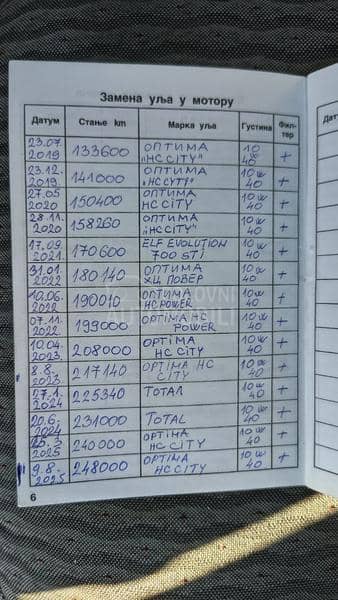 Замена уља у мотору
Датум Стање km Марка уља Густина Фил-тер
23.07. 2019 133600 ОПТИМА „HC CITY" 10 W 40 +
23.12. 2019 141000 ОПТИМА „HC CYTY" 10 W 40 +
27.05 2020 150400 ОПТИМА HC CITY 10 W 40 +
28.11. 2020 158260 ОПТИМА „HC CITY" 10 W 40 +
17.09. 2021. 170600 ELF EVOLUTION 700 STI 10 W 40 +
31.01. 2022 180140 ОПТИМА ХЦ ПОВЕР 10 W 40 +
10.06. 2022 190010 ОПТИМА HC POWER 10 W 40 +
07.11. 2022 199000 OPTIMA HC POWER 10 W 40 +
10.04. 2023. 208000 OPTIMA HC CITY 10 W 40 +
8.8. 2023 217140 OPTIMA HC CITY 10 W 40 +
27.1. 2024 225340 TOTAL 10 W 40 +
20.6. 2024 231000 TOTAL 10 W 40 +
25.3 2025 240000 OPTIMA HC CITY 10 W 40 +
9.8. 2025 248000 OPTIMA HC CITY 10 W 40 +
6
Дат